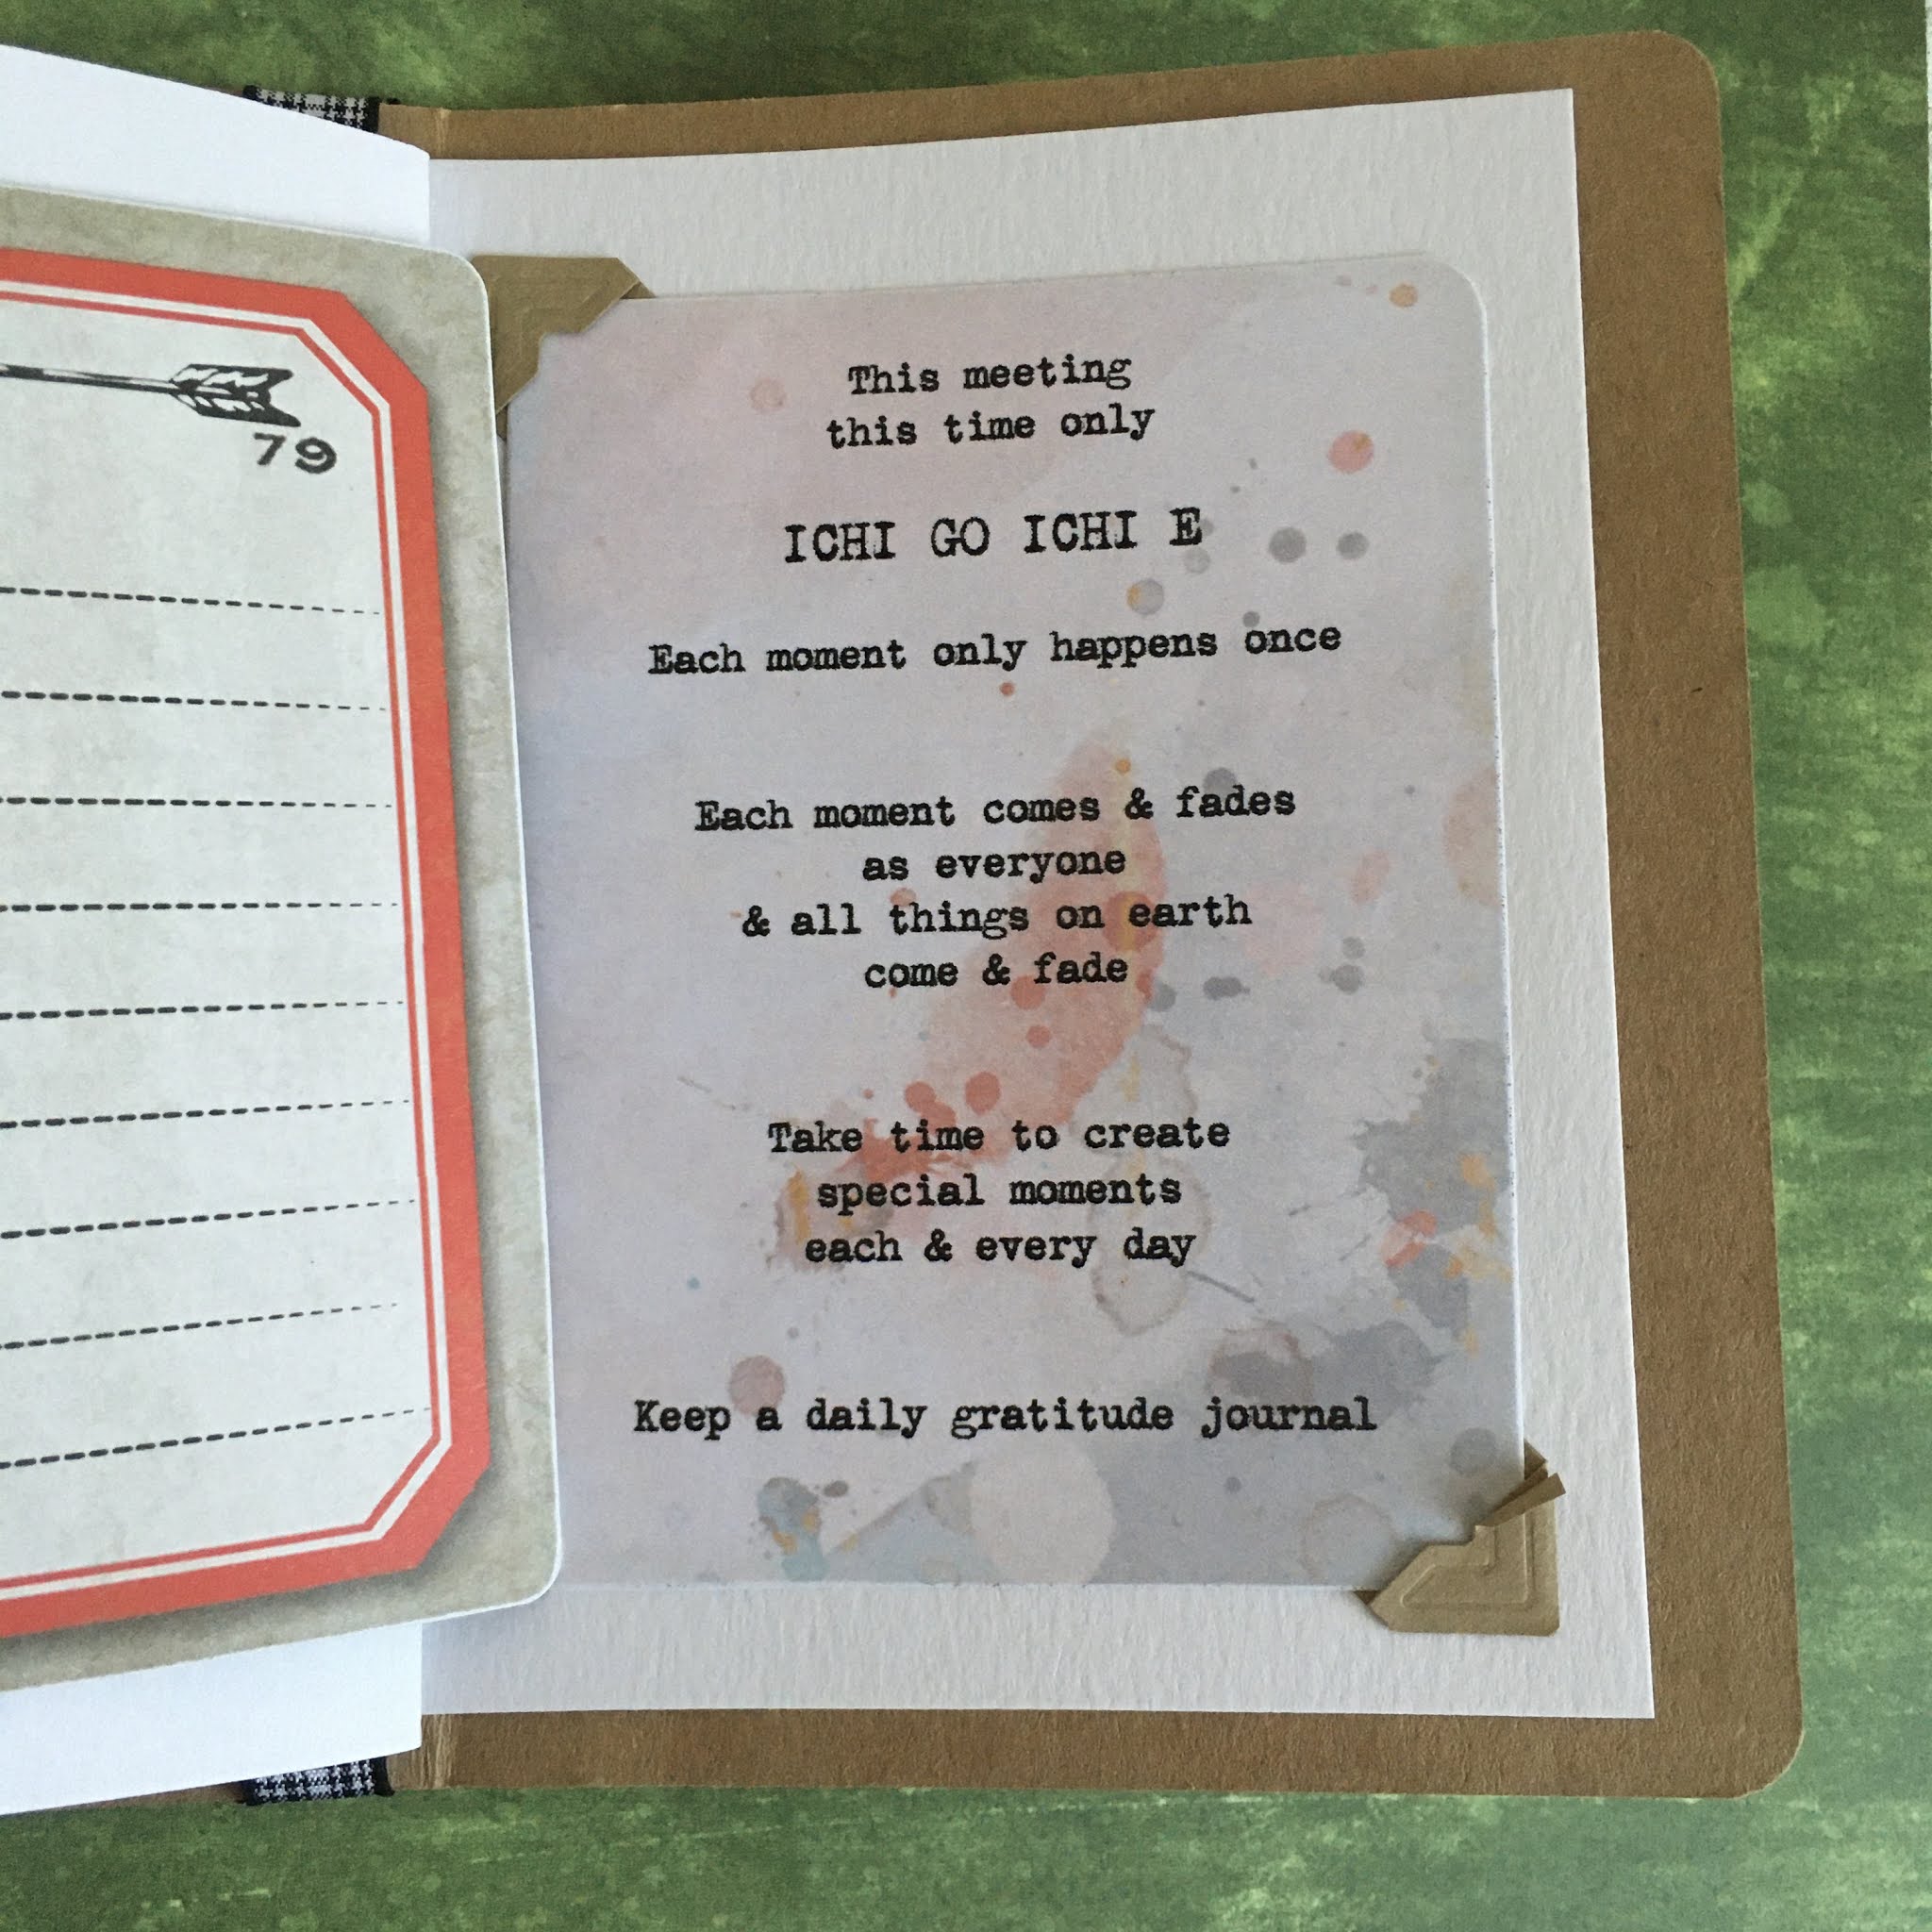 79
This meeting
this time only
ICHI GO ICHI E
Each moment only happens once
Each moment comes & fades
as everyone
& all things on earth
come & fade
Take time to create
special moments
each & every day
Keep a daily gratitude journal